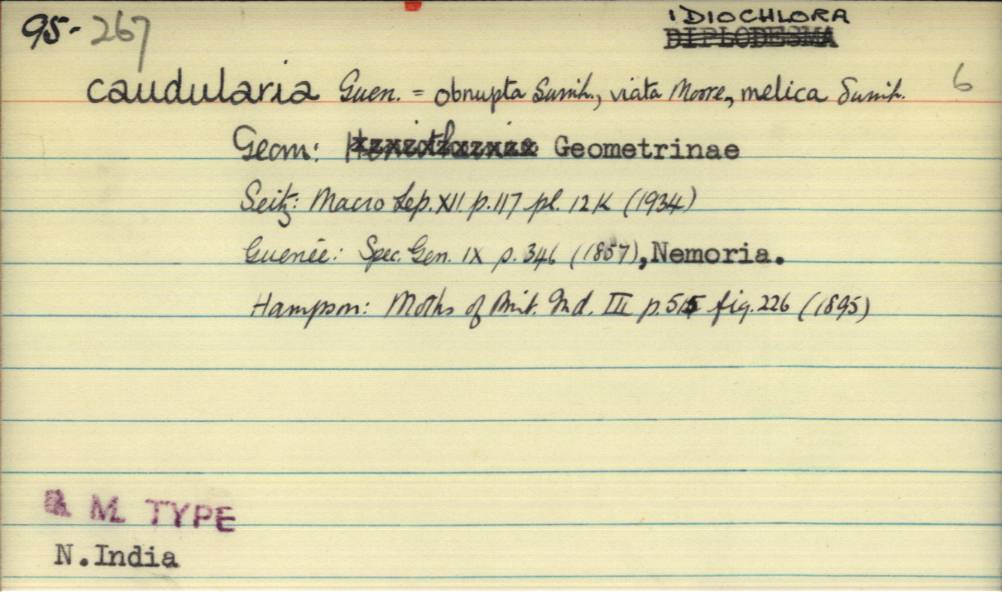 95-267
IDIOCHLORA
DIPLODESMA
caudularia Guen. = obnupta Swinh., viata Moore, melica Swinh. 6
Geom: Geometrinae
Seitz: Macro Lep. XII. p.117 pl. 12K (1934)
Guenée: Spec. Gen. IX p. 346 (1857), Nemoria.
Hampson: Moths of Brit. Ind. III p. fig. 226 (1895)
B M TYPE
N. India